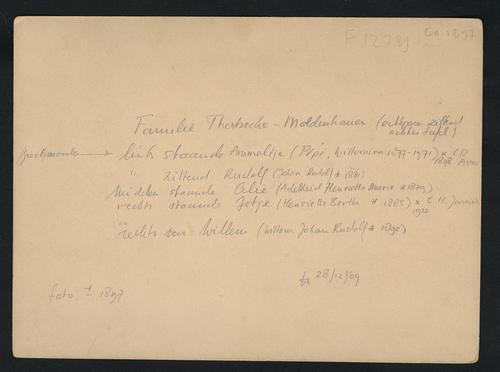 F 12389 Ca 1897
Familie Thorbecke - Moldenhauer (echtpaar zittend
achter tafel)
links staande Annaatje (Pépé, Willemina 1877-1971) *
1898
" zittend Rudolf (Johan Rudolf * 1881)
midden staande Adie (Adelheid Henriette Marie * 1879)
rechts staande Jetje (Henriette Bertha * 1885) x
1910
rechts van Willem (Willem Johan Rudolf * 1890)
28/12/69
foto ± 1897